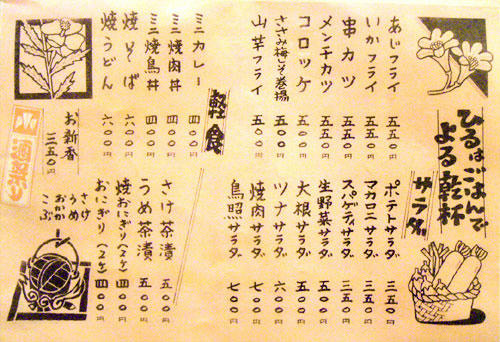 ひるはごはんで
よる乾杯
あじフライ 五五〇円
いかフライ 五五〇円
串カツ 五五〇円
メンチカツ 五五〇円
コロッケ 五〇〇円
ささみ梅しそ巻揚 五〇〇円
山芋フライ 五〇〇円
サラダ
ポテトサラダ 三五〇円
マカロニサラダ 三五〇円
スパゲティサラダ 三五〇円
生野菜サラダ 五〇〇円
大根サラダ 五〇〇円
ツナサラダ 六〇〇円
焼肉サラダ 七〇〇円
鳥照サラダ 七〇〇円
軽食
ミニカレー 四〇〇円
ミニ焼肉丼 四〇〇円
ミニ焼鳥丼 四〇〇円
焼そば 六〇〇円
焼うどん 六〇〇円
さけ茶漬 五〇〇円
うめ茶漬 五〇〇円
焼おにぎり(2ケ) 四〇〇円
おにぎり(2ケ) 四〇〇円
さけ
うめ
おかか
こぶ
お新香 三五〇円